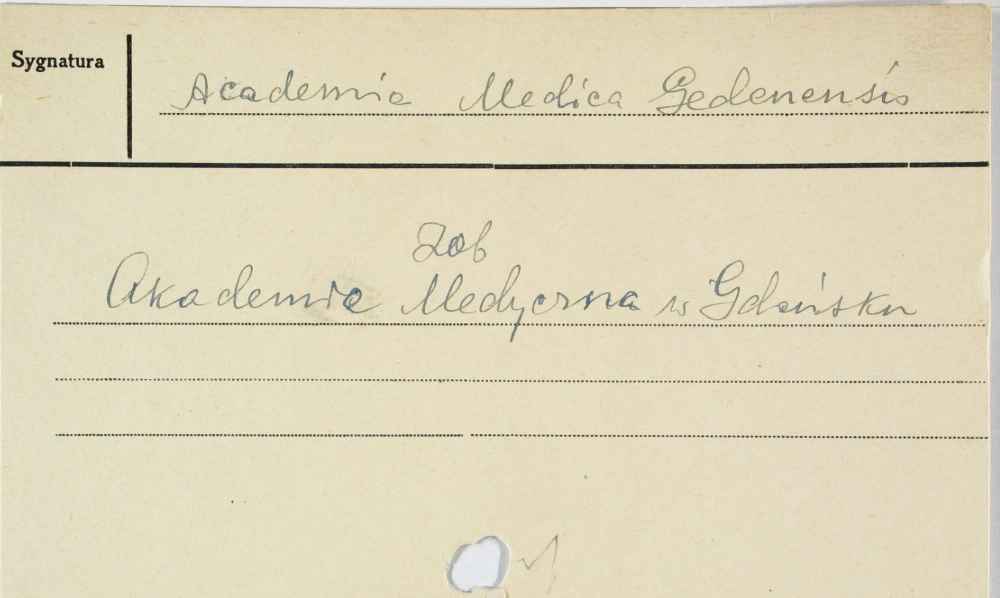 Sygnatura
Academia Medica Gedenensis
Zob
Akademia Medyczna w Gdańsku